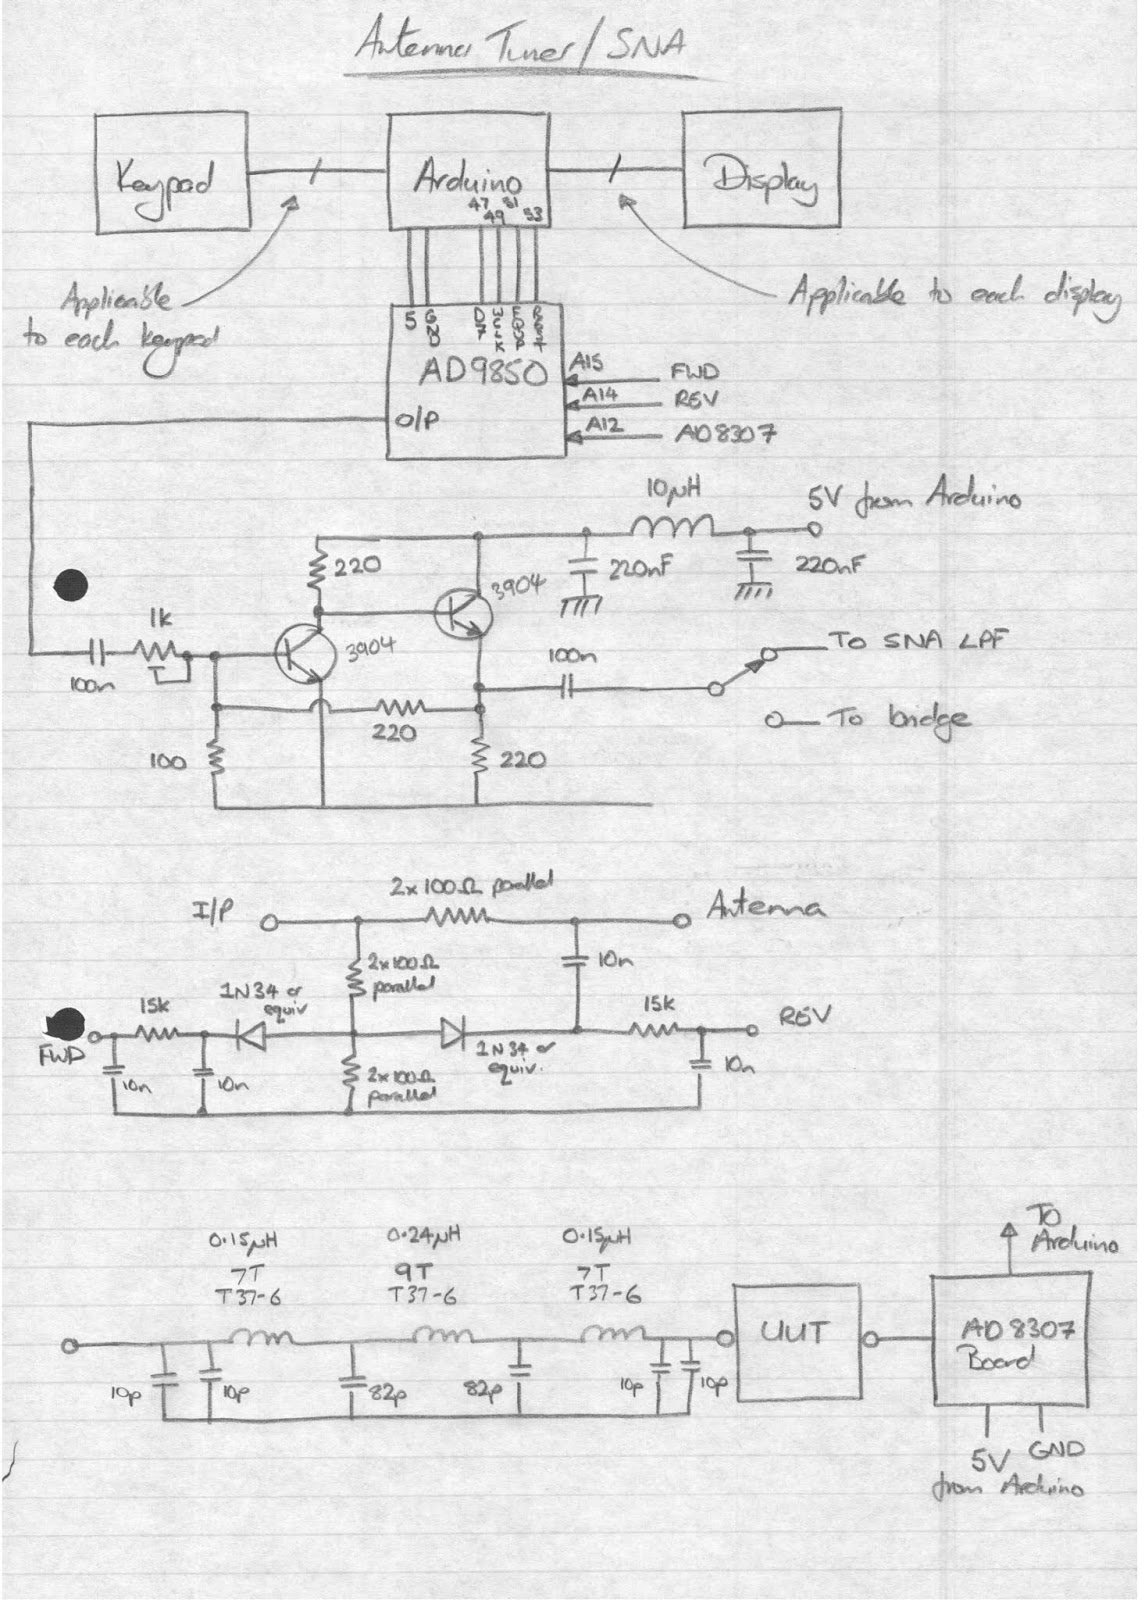 Antenna Tuner / SNA
Keypad
Arduino
47 51
49 53
Display
Applicable
to each keypad
Applicable to each display
5
GND
D7
WCLK
FQUP
REST
AD9850
O/P
A15
FWD
A14
REV
A12
AD8307
10μH
5V from Arduino
220
3904
220nF
220nF
1k
3904
100n
100n
To SNA LPF
To bridge
220
100
220
2x100Ω parallel
I/P
Antenna
2x100Ω
parallel
10n
1N34 or
equiv
15k
15k
REV
FWD
1N34 or
equiv.
10n
10n
2x100Ω
parallel
10n
0.15μH
7T
T37-6
0.24μH
9T
T37-6
0.15μH
7T
T37-6
To
Arduino
UUT
AD8307
Board
10p
10p
82p
82p
10p
10p
5V
GND
from Arduino